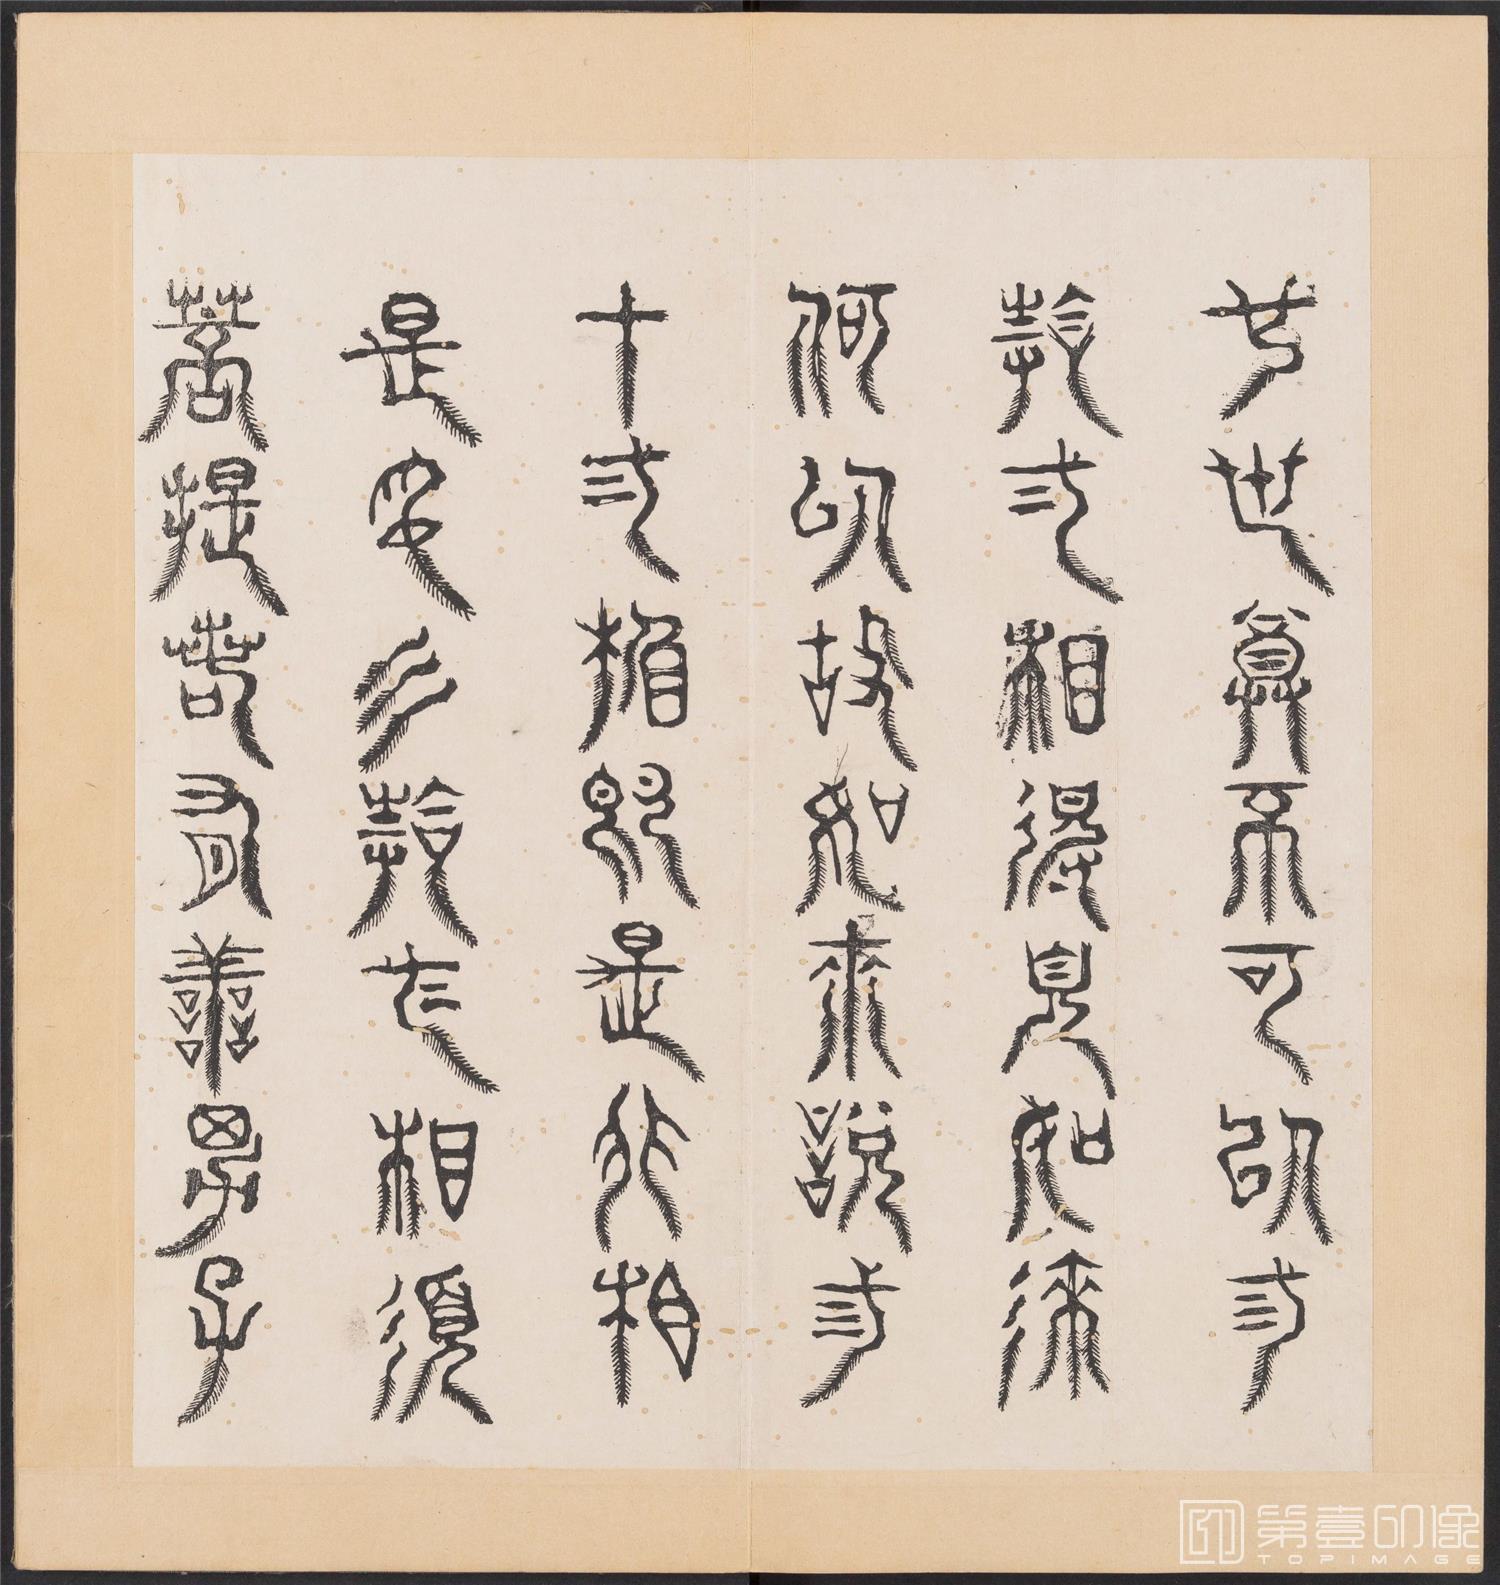 也世尊不可以三
十二相得見如來
何以故如來說三
十二相即是非相
是名三十二相須
菩提若有善男子
第壹印像
TOPIMAGE